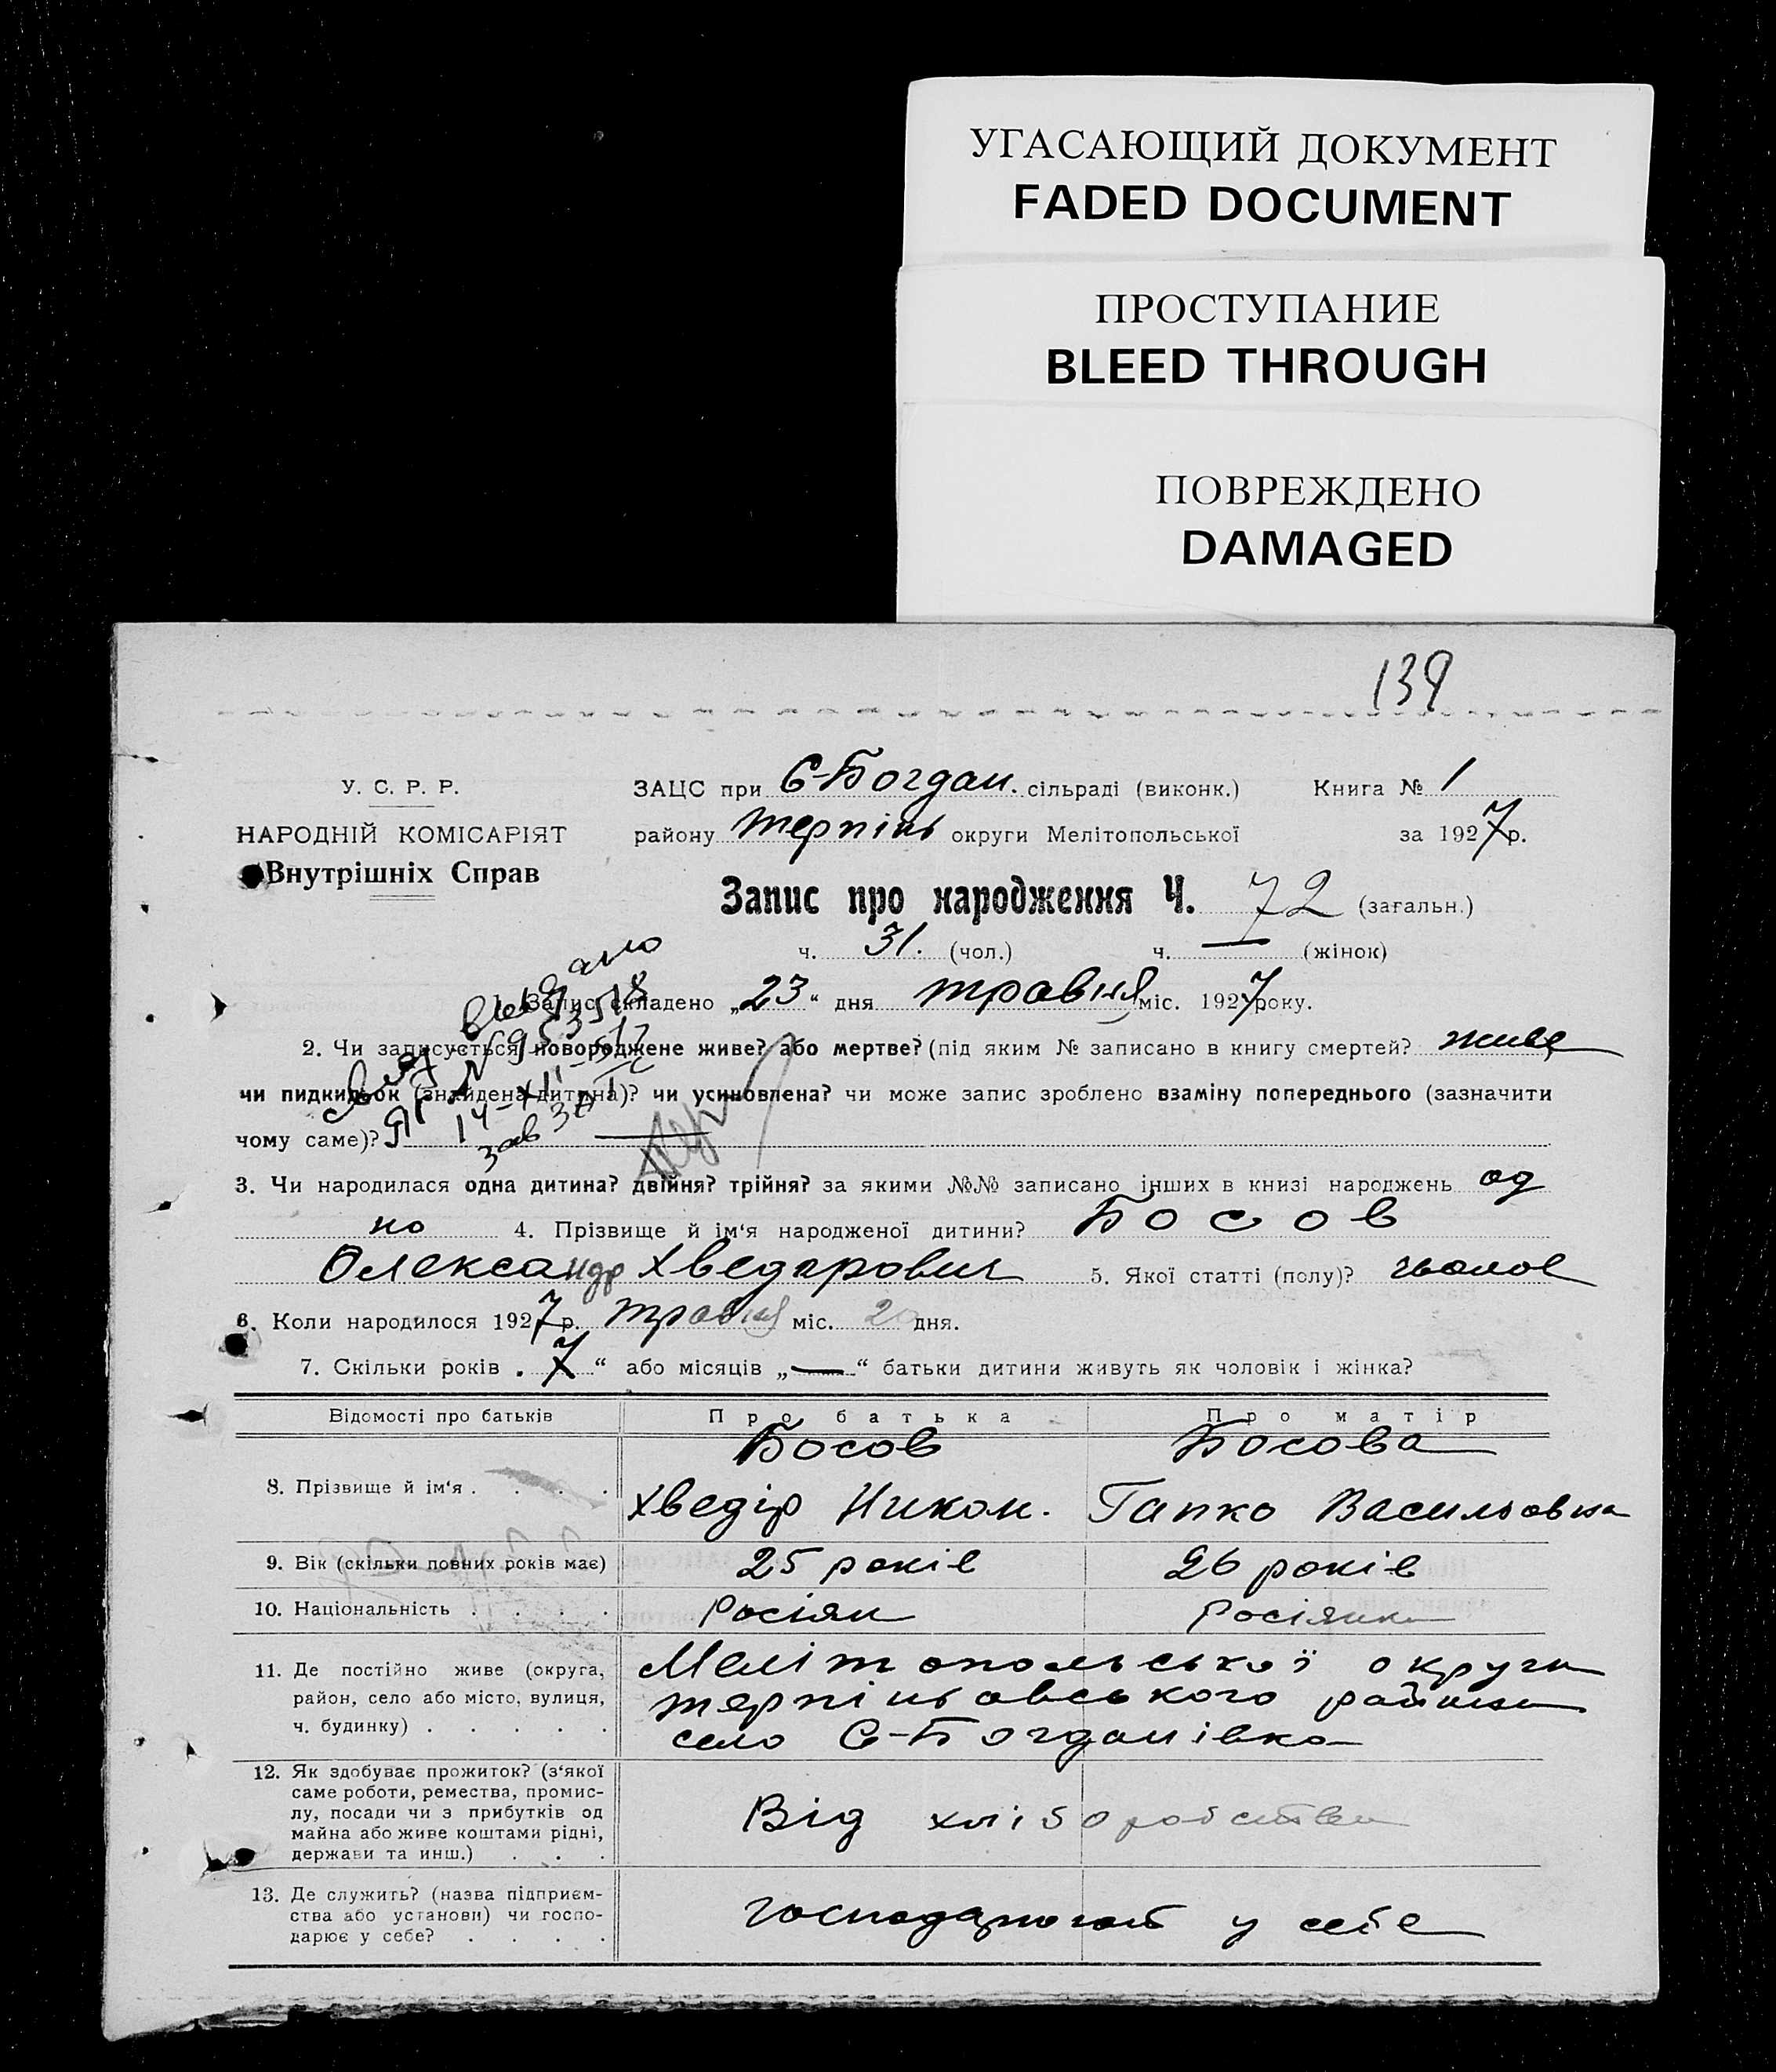 УГАСАЮЩИЙ ДОКУМЕНТ
FADED DOCUMENT
ПРОСТУПАНИЕ
BLEED THROUGH
ПОВРЕЖДЕНО
DAMAGED
139
У. С. Р. Р.
НАРОДНІЙ КОМІСАРІЯТ
Внутрішніх Справ
ЗАЦС при Є-Богдан. сільраді (виконк.) Книга № 1
району Терпінь округи Мелітопольської за 1927 р.
Запис про народження Ч. 72 (загальн.)
ч. 31. (чол.) ч. — (жінок)
1. Запис складено „23“ дня травня міс. 1927 року.
2. Чи записується новороджене живе? або мертве? (під яким № записано в книгу смертей? живе
чи пидкидьок (знайдена дитина)? чи усиновлена? чи може запис зроблено взаміну попереднього (зазначити
чому саме)? —
3. Чи народилася одна дитина? двійня? трійня? за якими №№ записано інших в книзі народжень од
но 4. Прізвище й ім‘я народженої дитини? Босов
Олександр Хведарович 5. Якої статті (полу)?
6. Коли народилося 1927 р. травня міс. 20 дня.
7. Скільки років „7“ або місяців „—“ батьки дитини живуть як чоловік і жінка?
Відомості про батьків Про батька Про матір
8. Прізвище й ім‘я . . . . Босов Босова
Хведір Никон. Гапко Васильовна
9. Вік (скільки повних років має) 25 років 26 років
10. Національність . . . . Росіян Росіянка
11. Де постійно живе (округа,
район, село або місто, вулиця,
ч. будинку) . . . . .
Мелітопольської округи
Терпіньовського району
село Є-Богданівка
12. Як здобуває прожиток? (з‘якої
саме роботи, ремества, промис-
лу, посади чи з прибутків од
майна або живе коштами рідні,
держави та инш.) . . .
Від хліборобства
13. Де служить? (назва підприєм-
ства або установи) чи госпо-
дарює у себе? . . . .
у себе